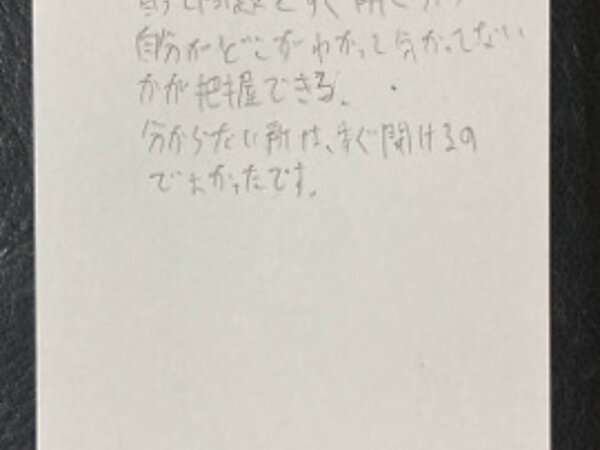 自分がどこがわかって分かってない
かが把握できる。
分からない所は、すぐ聞けるの
でよかったです。